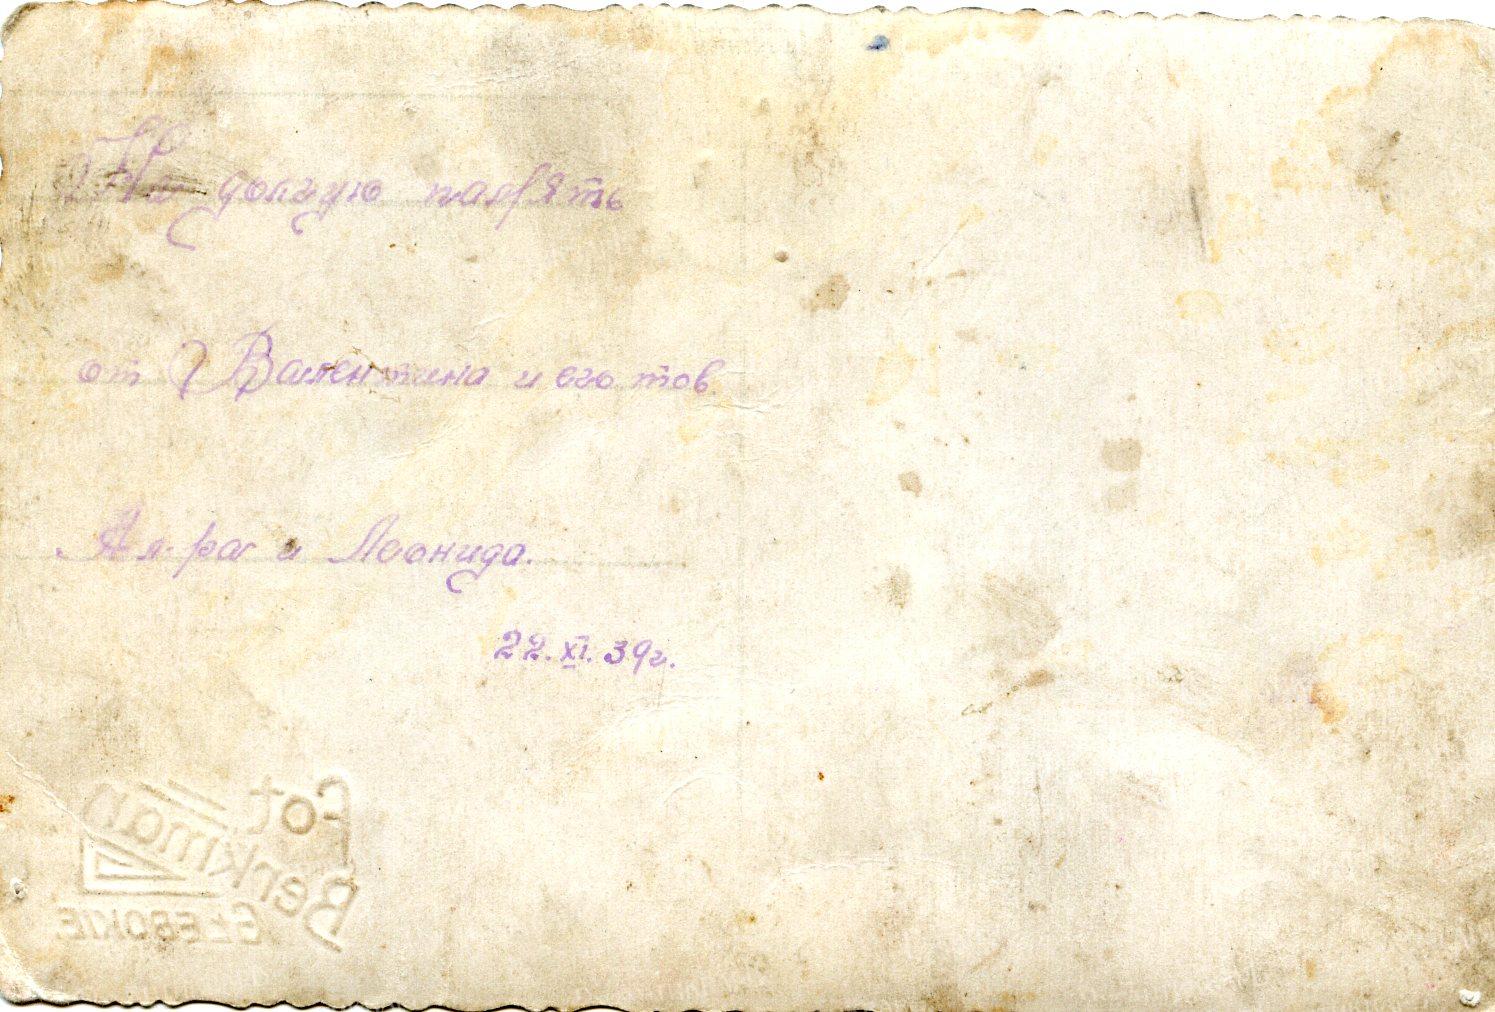 На долгую память
от Валентина и его тов.
Ал-ра и Леонида.
22.XI.39г.
Fot.
Berkman
GŁĘBOKIE